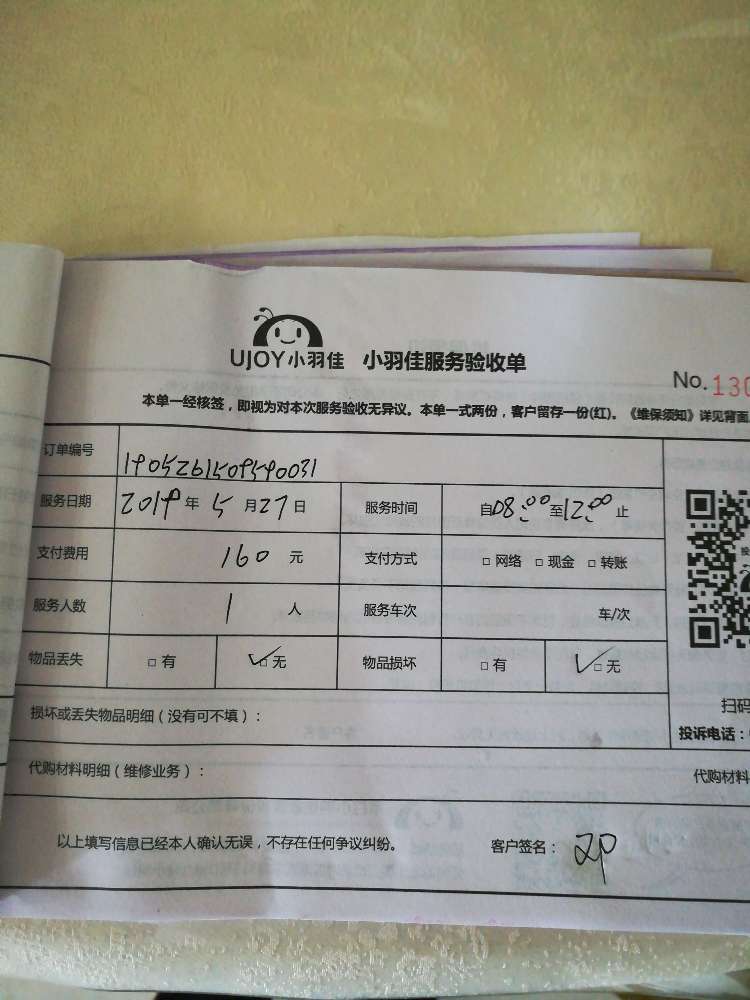 UJOY小羽佳 小羽佳服务验收单
No.130
本单一经核签，即视为对本次服务验收无异议。本单一式两份，客户留存一份(红)。《维保须知》详见背面
订单编号 1905261509590031
服务日期 2019年5月27日 服务时间 自08:00至12:00止
支付费用 160元 支付方式 □网络 □现金 □转账
服务人数 1人 服务车次 车/次
物品丢失 □有 ☑无 物品损坏 □有 ☑无
扫码
损坏或丢失物品明细（没有可不填）：
投诉电话：
代购材料明细（维修业务）： 代购材料
以上填写信息已经本人确认无误，不存在任何争议纠纷。 客户签名：